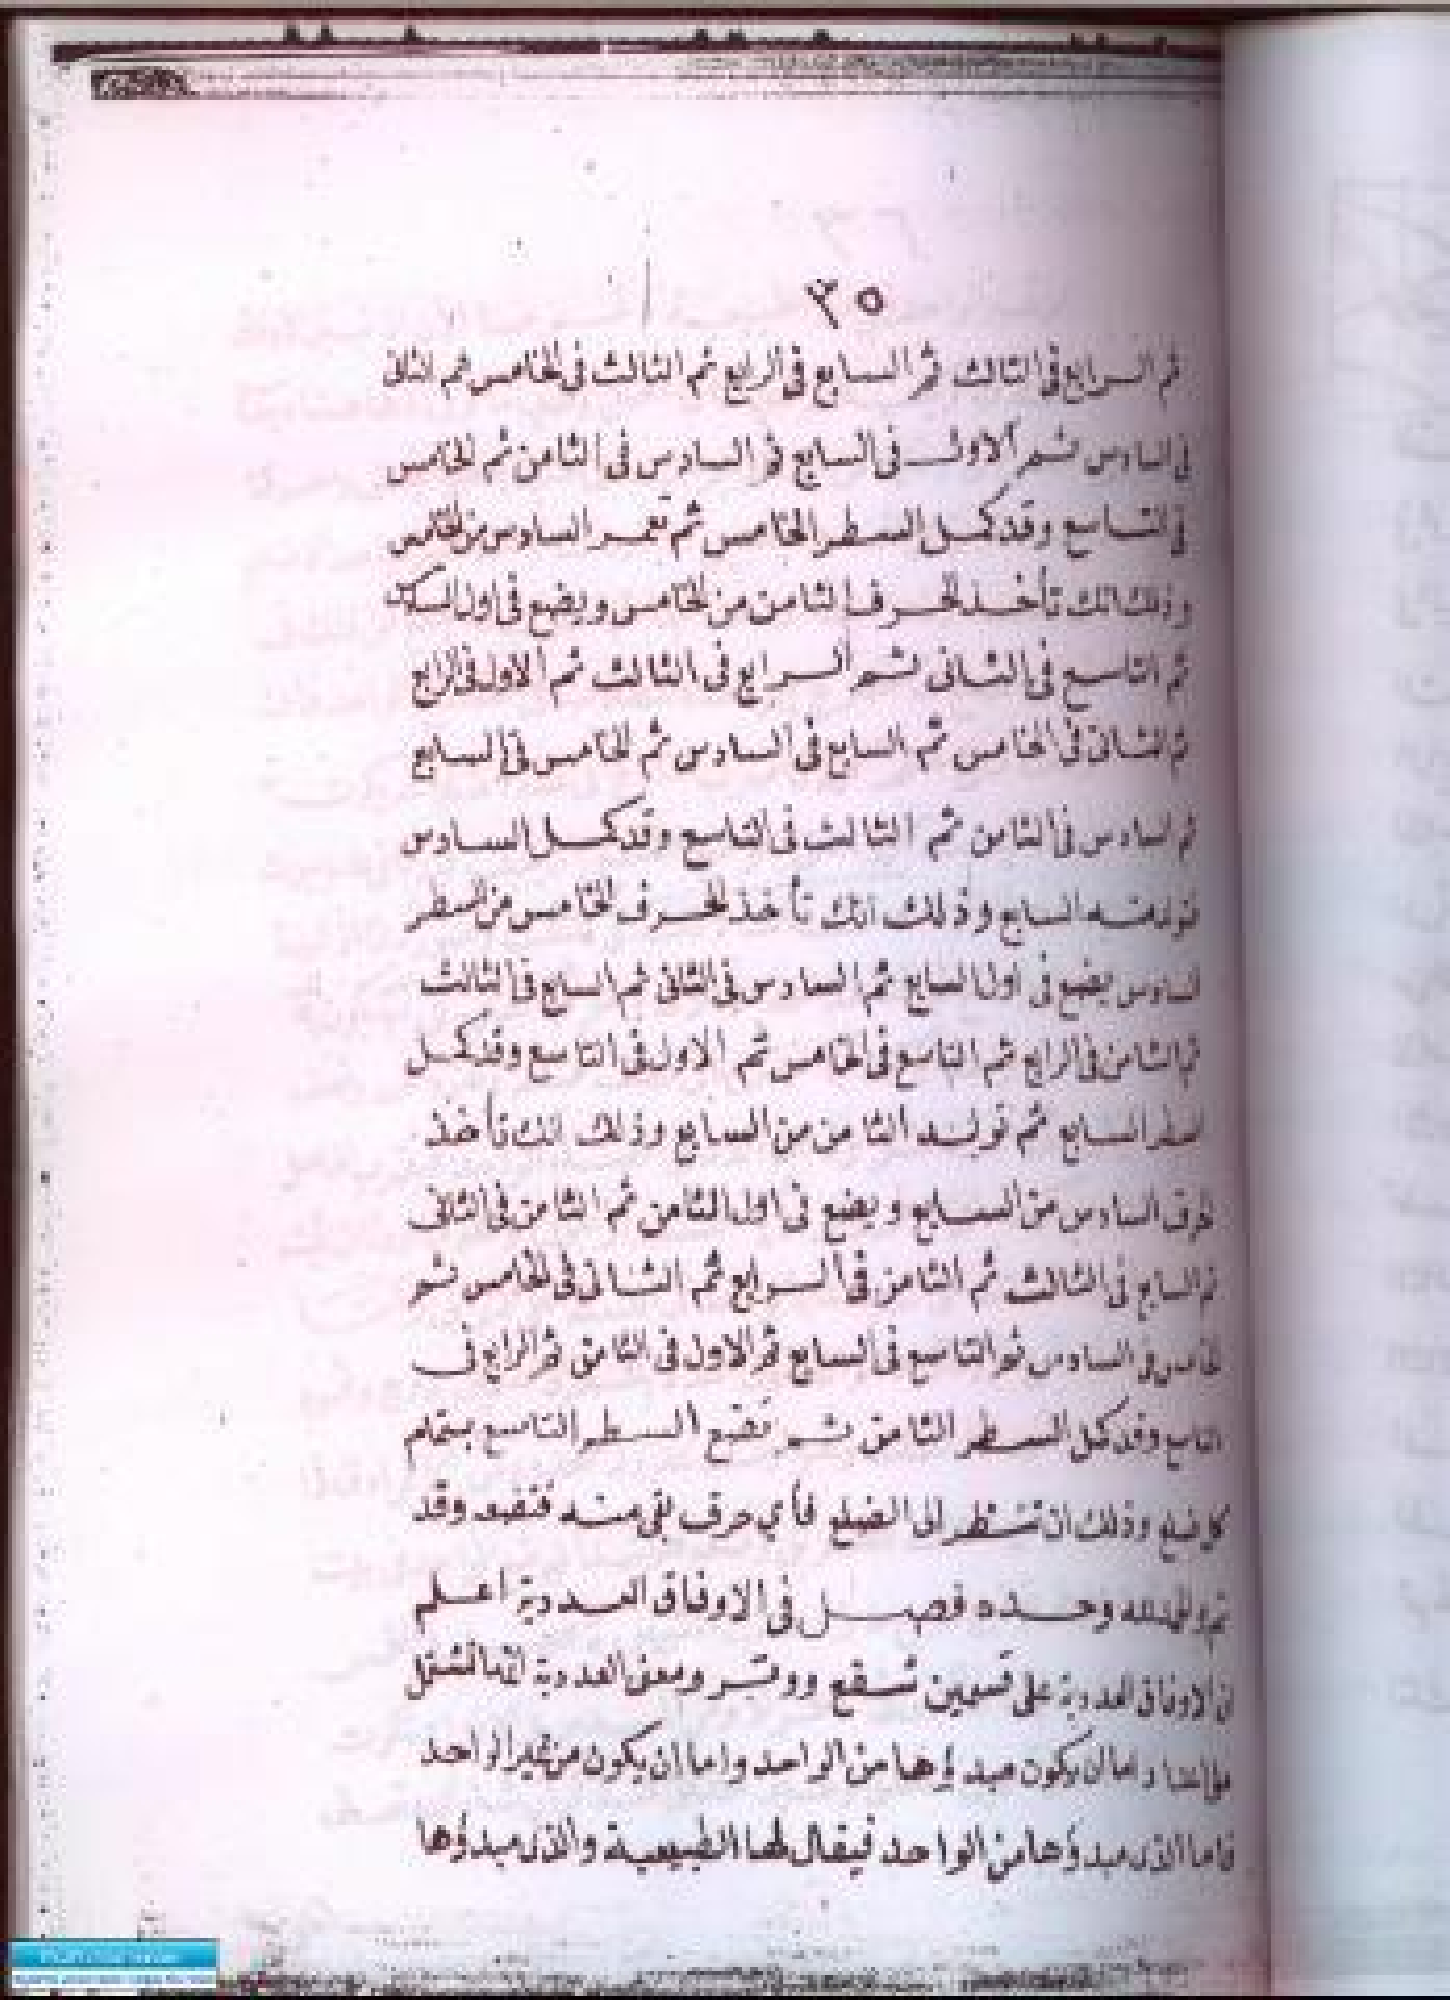 ٣٥
ثم الرابع فى الثالث ثم السابع فى الرابع ثم الثالث فى الخامس ثم الثانى
فى السادس ثم الاول فى السابع ثم السادس فى الثامن ثم الخامس
فى التاسع وقد كمل السطر الخامس ثم تعمر السادس من الخامس
وذلك انك تأخذ الحرف الثامن من الخامس ويضع فى اول
ثم التاسع فى الثانى ثم الرابع فى الثالث ثم الاول فى الرابع
ثم الثانى فى الخامس ثم السابع فى السادس ثم الخامس فى السابع
ثم السادس فى الثامن ثم الثالث فى التاسع وقد كمل السادس
السابع وذلك انك تأخذ الحرف الخامس من السطر
السادس يضع فى اول السابع ثم السادس فى الثانى ثم السابع فى الثالث
ثم الثامن فى الرابع ثم التاسع فى الخامس ثم الاول فى التاسع وقد كمل
السطر السابع ثم توليد الثامن من السابع وذلك انك تأخذ
السادس من السابع ويضع فى اول الثامن ثم الثامن فى الثانى
ثم السابع فى الثالث ثم الثامن فى الرابع ثم الثانى فى الخامس ثم
الخامس فى السادس ثم التاسع فى السابع ثم الاول فى الثامن ثم الرابع فى
التاسع وقد كمل السطر الثامن ثم تضع السطر التاسع
كل ضلع وذلك ان تنظر الى الضلع فأي حرف بقى منه وقد
تم والحمد لله وحده فصل فى الاوفاق العددية اعلم
ان الاوفاق العددية على قسمين شفع ووتر ومعنى العددية
واما ان يكون مبدؤها من الواحد واما ان يكون من غير الواحد
فاما الذى مبدؤها من الواحد فيقال لها الطبيعية والذى مبدؤها